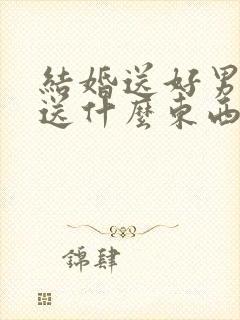 結婚送好男
送什麼東西
錦肆